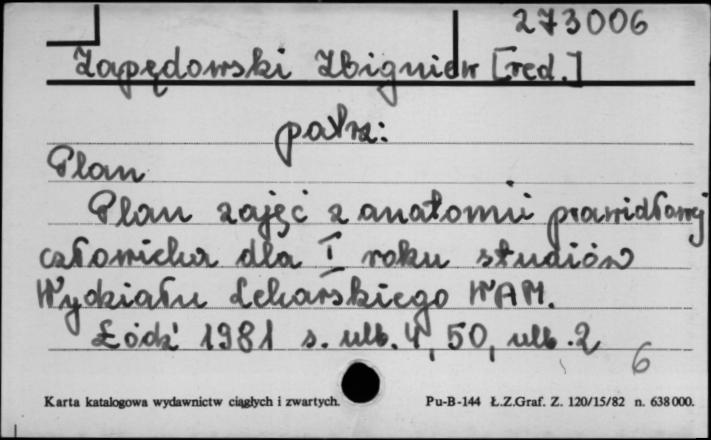 273006
Zapędowski Zbigniew [red.]
patrz:
Plan
Plan zajęć z anatomii prawidłowej
człowieka dla I roku studiów
Wydziału Lekarskiego WAM.
Łódź 1981 s. nlb. 4, 50, nlb. 2
6
Karta katalogowa wydawnictw ciągłych i zwartych.
Pu-B-144 Ł.Z.Graf. Z. 120/15/82 n. 638000.